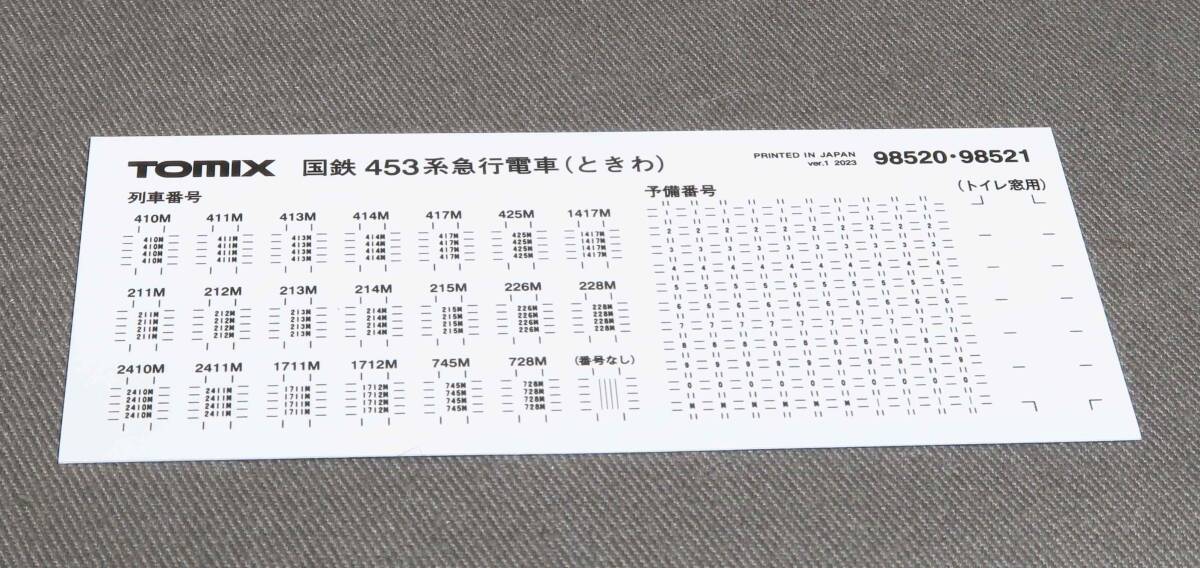 TOMIX 国鉄 453系急行電車(ときわ) PRINTED IN JAPAN ver.1 2023 98520・98521
列車番号 予備番号 (トイレ窓用)
410M 411M 413M 414M 417M 425M 1417M
410M 411M 413M 414M 417M 425M 1417M
410M 411M 413M 414M 417M 425M 1417M
410M 411M 413M 414M 417M 425M 1417M
410M 411M 413M 414M 417M 425M 1417M
211M 212M 213M 214M 215M 226M 228M
211M 212M 213M 214M 215M 226M 228M
211M 212M 213M 214M 215M 226M 228M
211M 212M 213M 214M 215M 226M 228M
211M 212M 213M 214M 215M 226M 228M
2410M 2411M 1711M 1712M 745M 728M (番号なし)
2410M 2411M 1711M 1712M 745M 728M
2410M 2411M 1711M 1712M 745M 728M
2410M 2411M 1711M 1712M 745M 728M
2410M 2411M 1711M 1712M 745M 728M